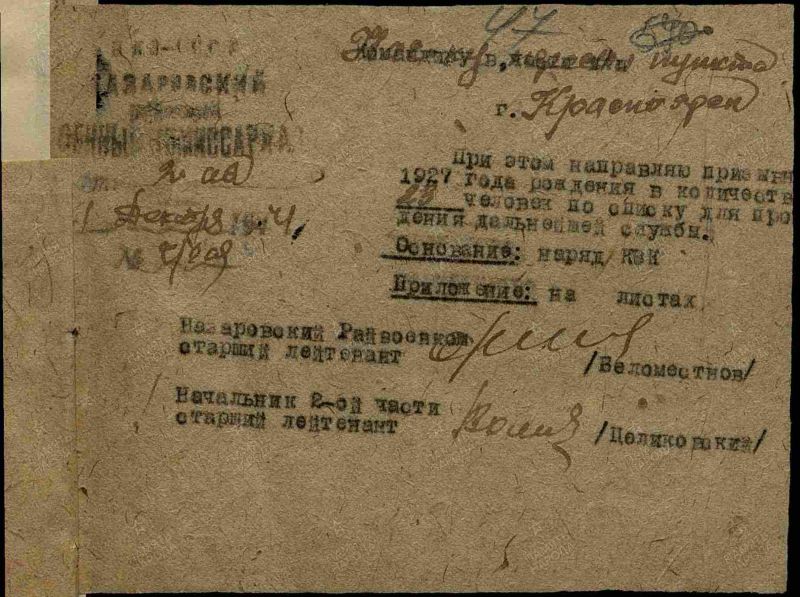 47
570
НКО-СССР
НАЗАРОВСКИЙ
РАЙОННЫЙ
ВОЕННЫЙ КОМИССАРИАТ
2
1 Декабря 1944
№
Командиру в/части п/п
пункта
г. Красноярск
При этом направляю призывн
1927 года рождения в количеств
28 человек по списку для про
дения дальнейшей службы.
Основание: наряд КВК
Приложение: на листах
Назаровский Райвоенком
старший лейтенант /Беломестнов/
Начальник 2-ой части
старший лейтенант /Целиковский/